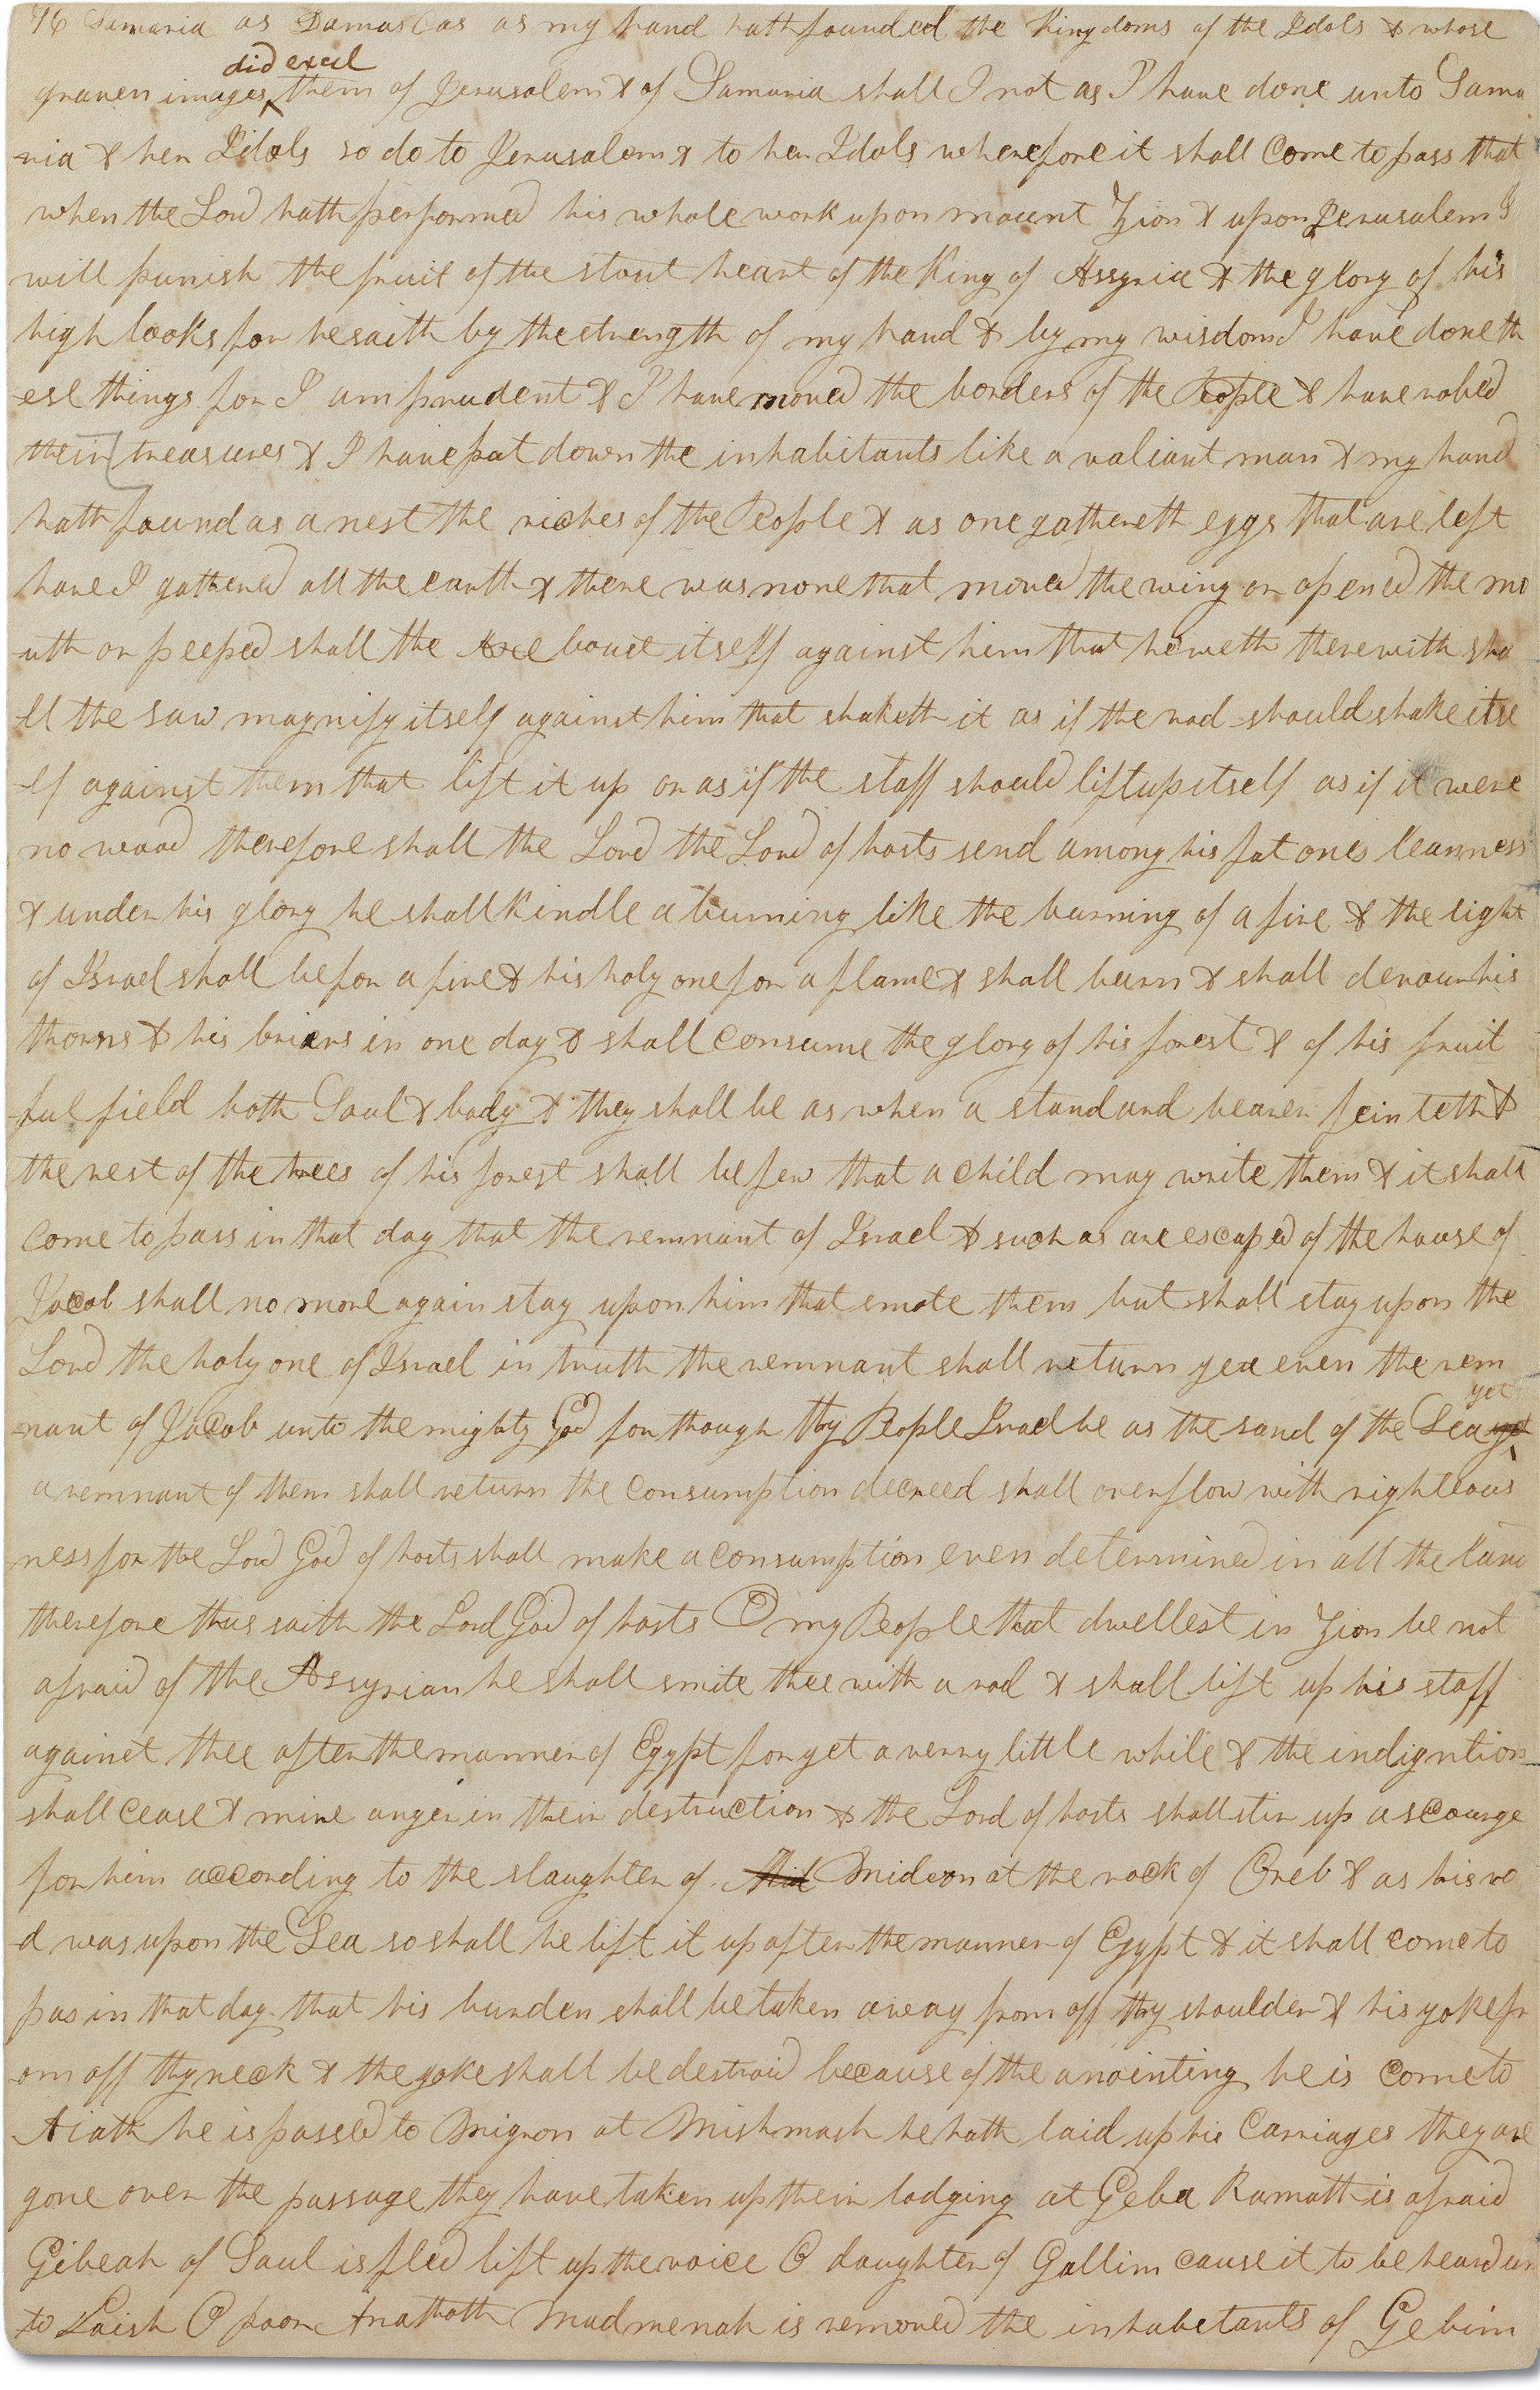 76 Samaria as Damascas as my hand hath founded the Kingdoms of the Idols & whose
did excel
graven images them of Jerusalem & of Samaria shall I not as I have done unto Sama
-ria & her Idols so do to Jerusalem & to her Idols wherefore it shall Come to pass that
when the Lord hath performed his whole work upon mount Zion & upon Jerusalem I
will punish the fruit of the stout heart of the King of Assyria & the glory of his
high looks for he saith by the strength of my hand & by my wisdom I have done th
ese things for I am prudent & I have moved the borders of the People & have robed
their treasures & I have put down the inhabitants like a valiant man & my hand
hath found as a nest the riches of the People & as one gathereth eggs that are left
have I gathered all the earth & there was none that moved the wing or opened the mo
uth or peeped shall the Axe boast itself against him that heweth therewith sha
-ll the saw magnify itself against him that shaketh it as if the rod should shake itse
-lf against them that lift it up or as if the staff should lift up itself as if it were
no wood therefore shall the Lord the Lord of hosts send among his fat ones leanness
& under his glory he shall Kindle a burning like the burning of a fire & the light
of Israel shall be for a fire & his holy one for a flame & shall burn & shall devour his
thorns & his briars in one day & shall Consume the glory of his forest & of his fruit
-ful field both Soul & body & they shall be as when a standard bearer feinteth &
the rest of the trees of his forest shall be few that a Child may write them & it shall
Come to pass in that day that the remnant of Israel & such as are escaped of the house of
Jacob shall no more again stay upon him that smote them but shall stay upon the
Lord the holy one of Israel in truth the remnant shall return yea even the rem
yet
-nant of Jacob unto the mighty God for though thy People Israel be as the sand of the Sea yet
a remnant of them shall return the Consumption decreed shall overflow with righteous
ness for the Lord God of hosts shall make a Consumption even determined in all the land
therefore thus saith the Lord God of hosts O my People that dwellest in Zion be not
afraid of the Assyrian he shall smite thee with a rod & shall lift up his staff
against thee after the manner of Egypt for yet a verry little while & the indigntion
shall Cease & mine anger in their destruction & the Lord of hosts shall stir up a scourge
for him according to the slaughter of Mid Mideon at the rock of Oreb & as his ro
-d was upon the Sea so shall he lift it up after the manner of Egypt & it shall come to
pas in that day that his burden shall be taken away from off thy shoulder & his yoke fr
-om off thy neck & the yoke shall be destroid because of the anointing he is Come to
Aiath he is passed to Migron at Mishmash he hath laid up his Carriages they are
gone over the passage they have taken up their lodging at Geba Ramath is afraid
Gibeah of Saul is fled lift up the voice O daughter of Gallim cause it to be heard un
-to Laish O poor Anathoth Madmenah is removed the inhabetants of Gebim